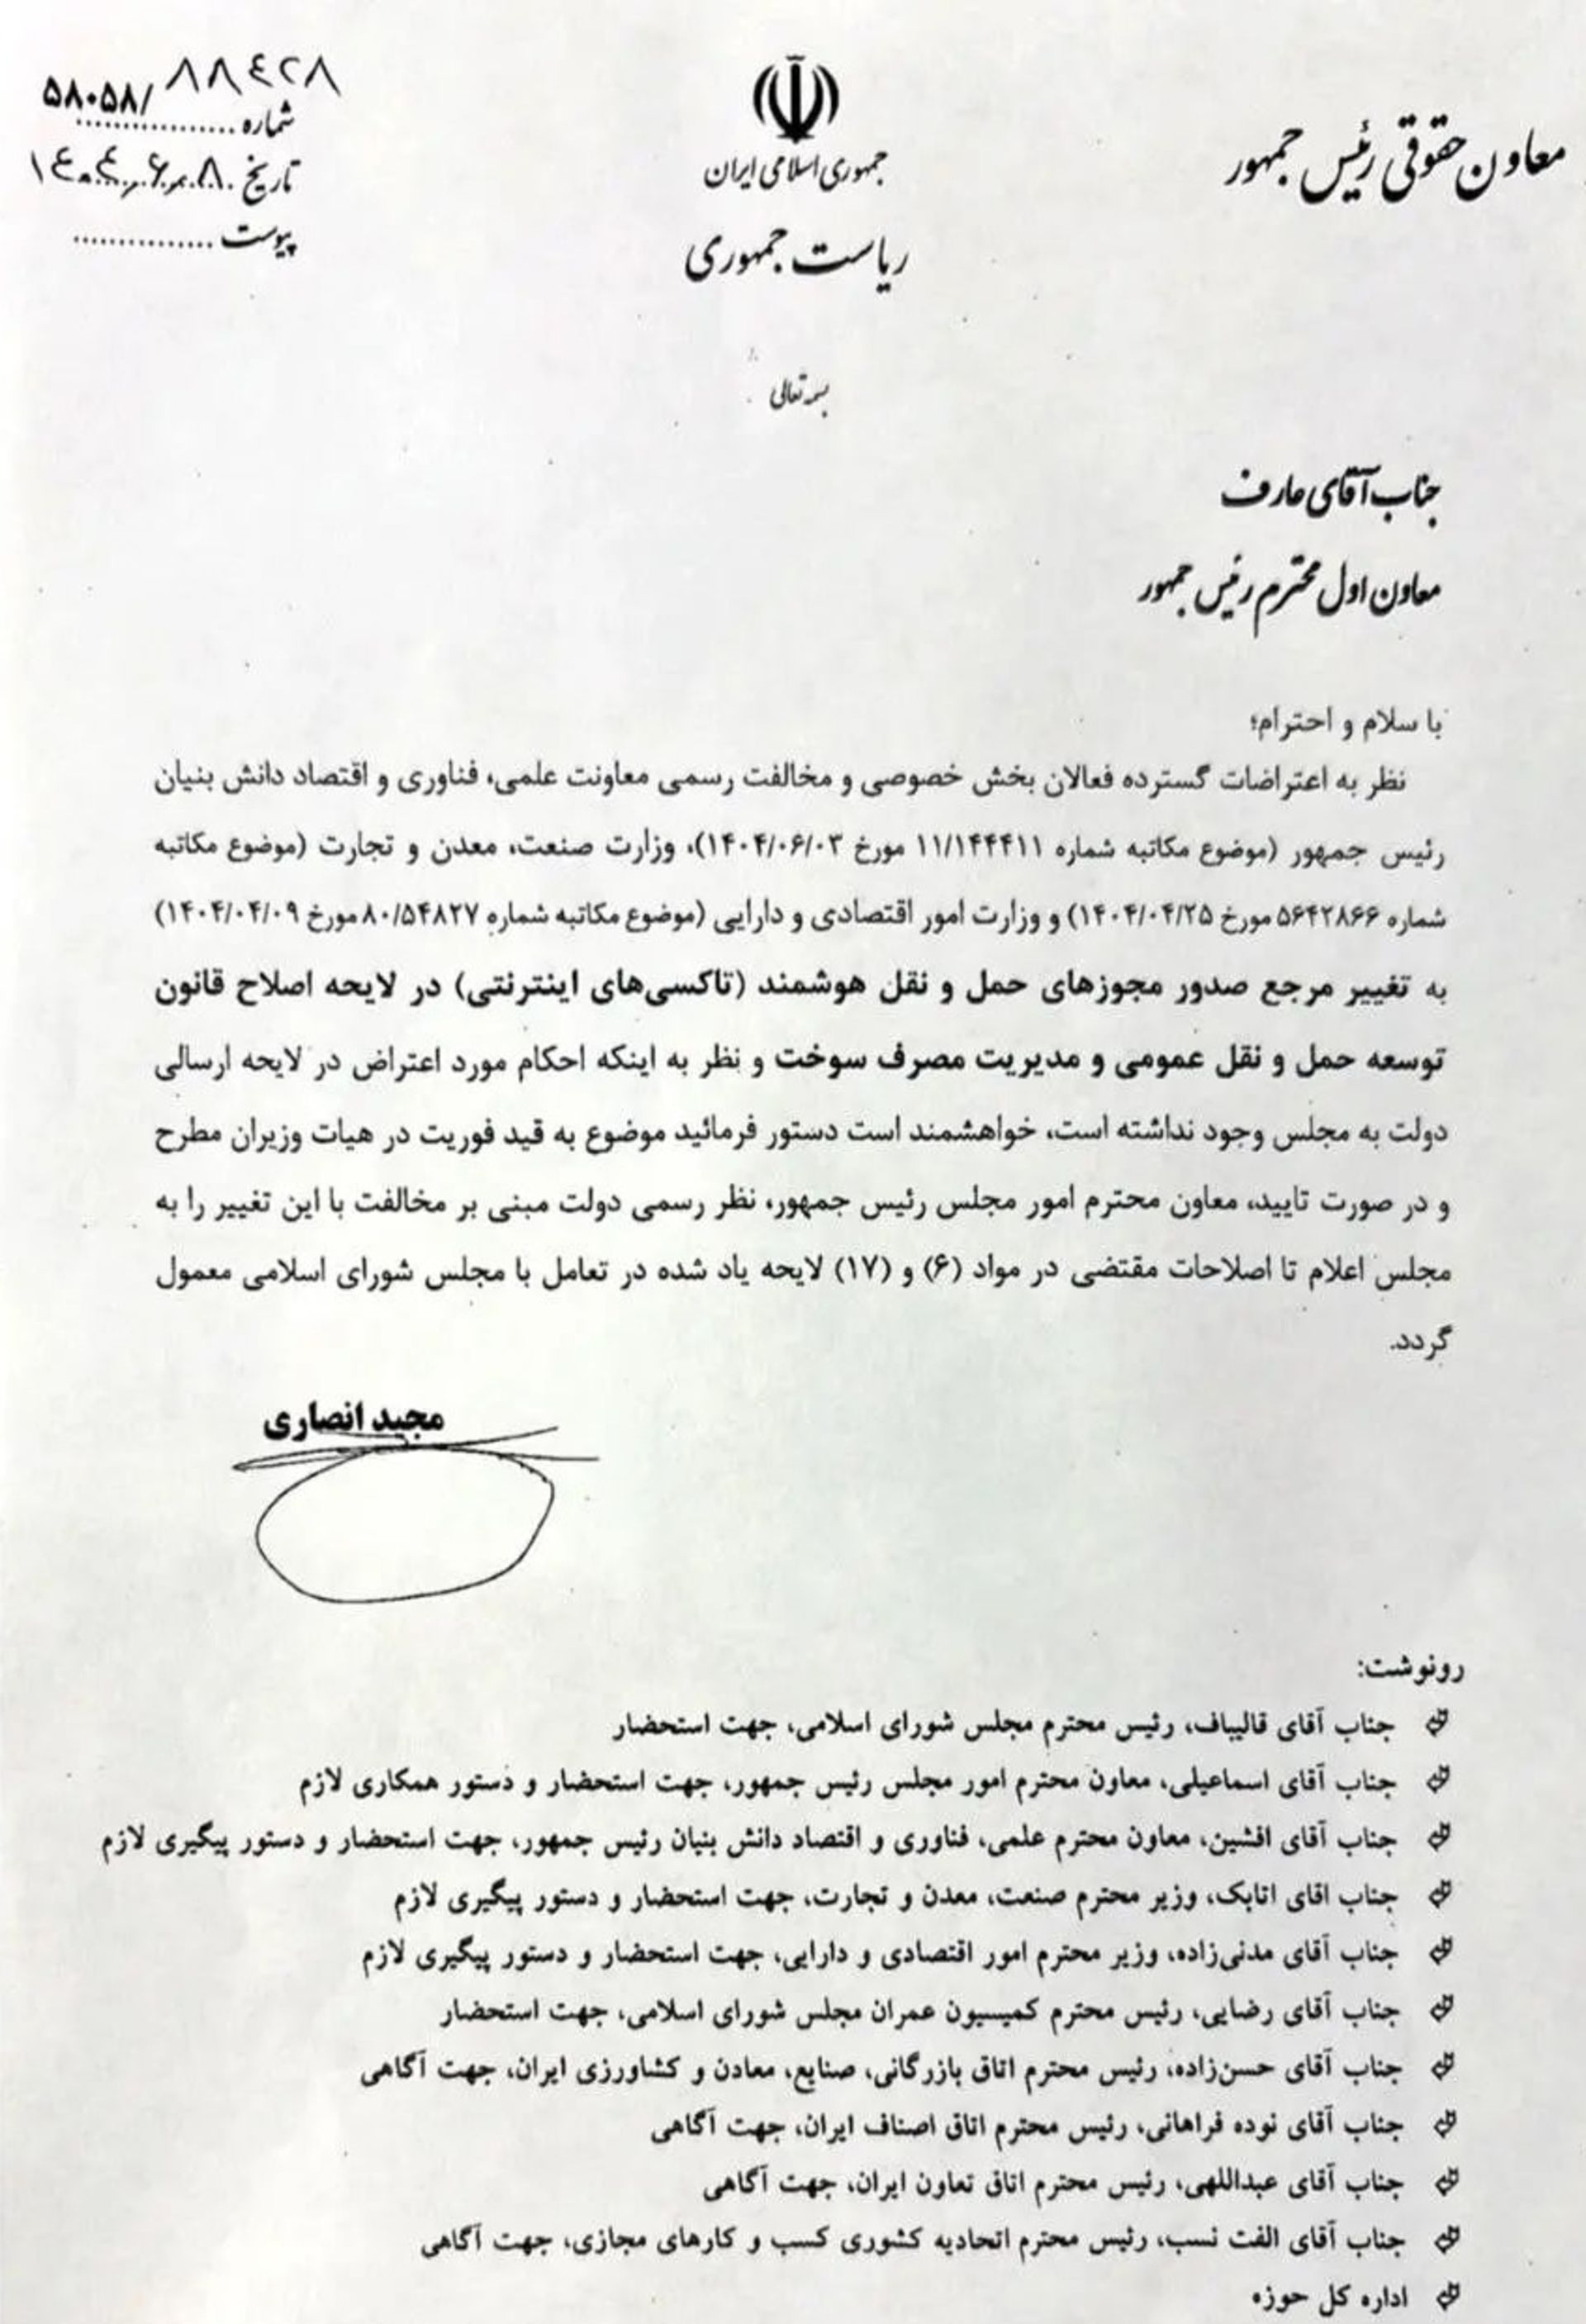 معاون حقوقی رئیس جمهور
جمهوری اسلامی ایران
ریاست جمهوری
۵۸۰۵۸/ ۸۸۴۲۸
شماره
تاریخ ۱۴۰۴.۶.۸
پیوست
بسمه تعالی
جناب آقای عارف
معاون اول محترم رئیس جمهور
با سلام و احترام؛
نظر به اعتراضات گسترده فعالان بخش خصوصی و مخالفت رسمی معاونت علمی، فناوری و اقتصاد دانش بنیان
رئیس جمهور (موضوع مکاتبه شماره ۱۱/۱۴۴۴۱۱ مورخ ۱۴۰۴/۰۶/۰۳)، وزارت صنعت، معدن و تجارت (موضوع مکاتبه
شماره ۵۶۴۲۸۶۶ مورخ ۱۴۰۴/۰۴/۲۵) و وزارت امور اقتصادی و دارایی (موضوع مکاتبه شماره ۸۰/۵۴۸۲۷ مورخ ۱۴۰۴/۰۴/۰۹)
به تغییر مرجع صدور مجوزهای حمل و نقل هوشمند (تاکسی‌های اینترنتی) در لایحه اصلاح قانون
توسعه حمل و نقل عمومی و مدیریت مصرف سوخت و نظر به اینکه احکام مورد اعتراض در لایحه ارسالی
دولت به مجلس وجود نداشته است، خواهشمند است دستور فرمائید موضوع به قید فوریت در هیات وزیران مطرح
و در صورت تایید، معاون محترم امور مجلس رئیس جمهور، نظر رسمی دولت مبنی بر مخالفت با این تغییر را به
مجلس اعلام تا اصلاحات مقتضی در مواد (۶) و (۱۷) لایحه یاد شده در تعامل با مجلس شورای اسلامی معمول
گردد.
مجید انصاری
رونوشت:
جناب آقای قالیباف، رئیس محترم مجلس شورای اسلامی، جهت استحضار
جناب آقای اسماعیلی، معاون محترم امور مجلس رئیس جمهور، جهت استحضار و دستور همکاری لازم
جناب آقای افشین، معاون محترم علمی، فناوری و اقتصاد دانش بنیان رئیس جمهور، جهت استحضار و دستور پیگیری لازم
جناب اقای اتابک، وزیر محترم صنعت، معدن و تجارت، جهت استحضار و دستور پیگیری لازم
جناب آقای مدنی‌زاده، وزیر محترم امور اقتصادی و دارایی، جهت استحضار و دستور پیگیری لازم
جناب آقای رضایی، رئیس محترم کمیسیون عمران مجلس شورای اسلامی، جهت استحضار
جناب آقای حسن‌زاده، رئیس محترم اتاق بازرگانی، صنایع، معادن و کشاورزی ایران، جهت آگاهی
جناب آقای نوده فراهانی، رئیس محترم اتاق اصناف ایران، جهت آگاهی
جناب آقای عبداللهی، رئیس محترم اتاق تعاون ایران، جهت آگاهی
جناب آقای الفت نسب، رئیس محترم اتحادیه کشوری کسب و کارهای مجازی، جهت آگاهی
اداره کل حوزه